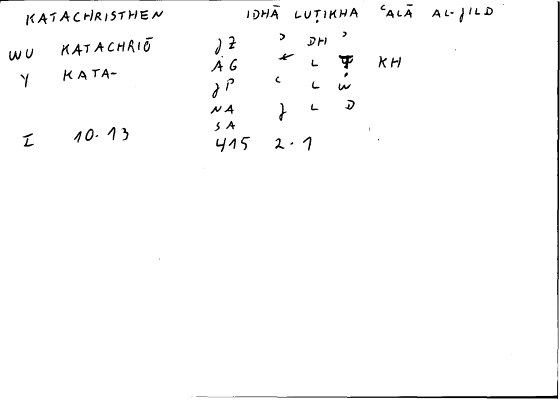 KATACHRISTHEN IDHĀ LUṬIKHA ʿALĀ AL-JILD
WU KATACHRIŌ JZ ʾ DH ʾ
Y KATA- ÄG ← L Ṭ KH
JP ʿ L W
NA J L D
SA
I 10.13 415 2.1